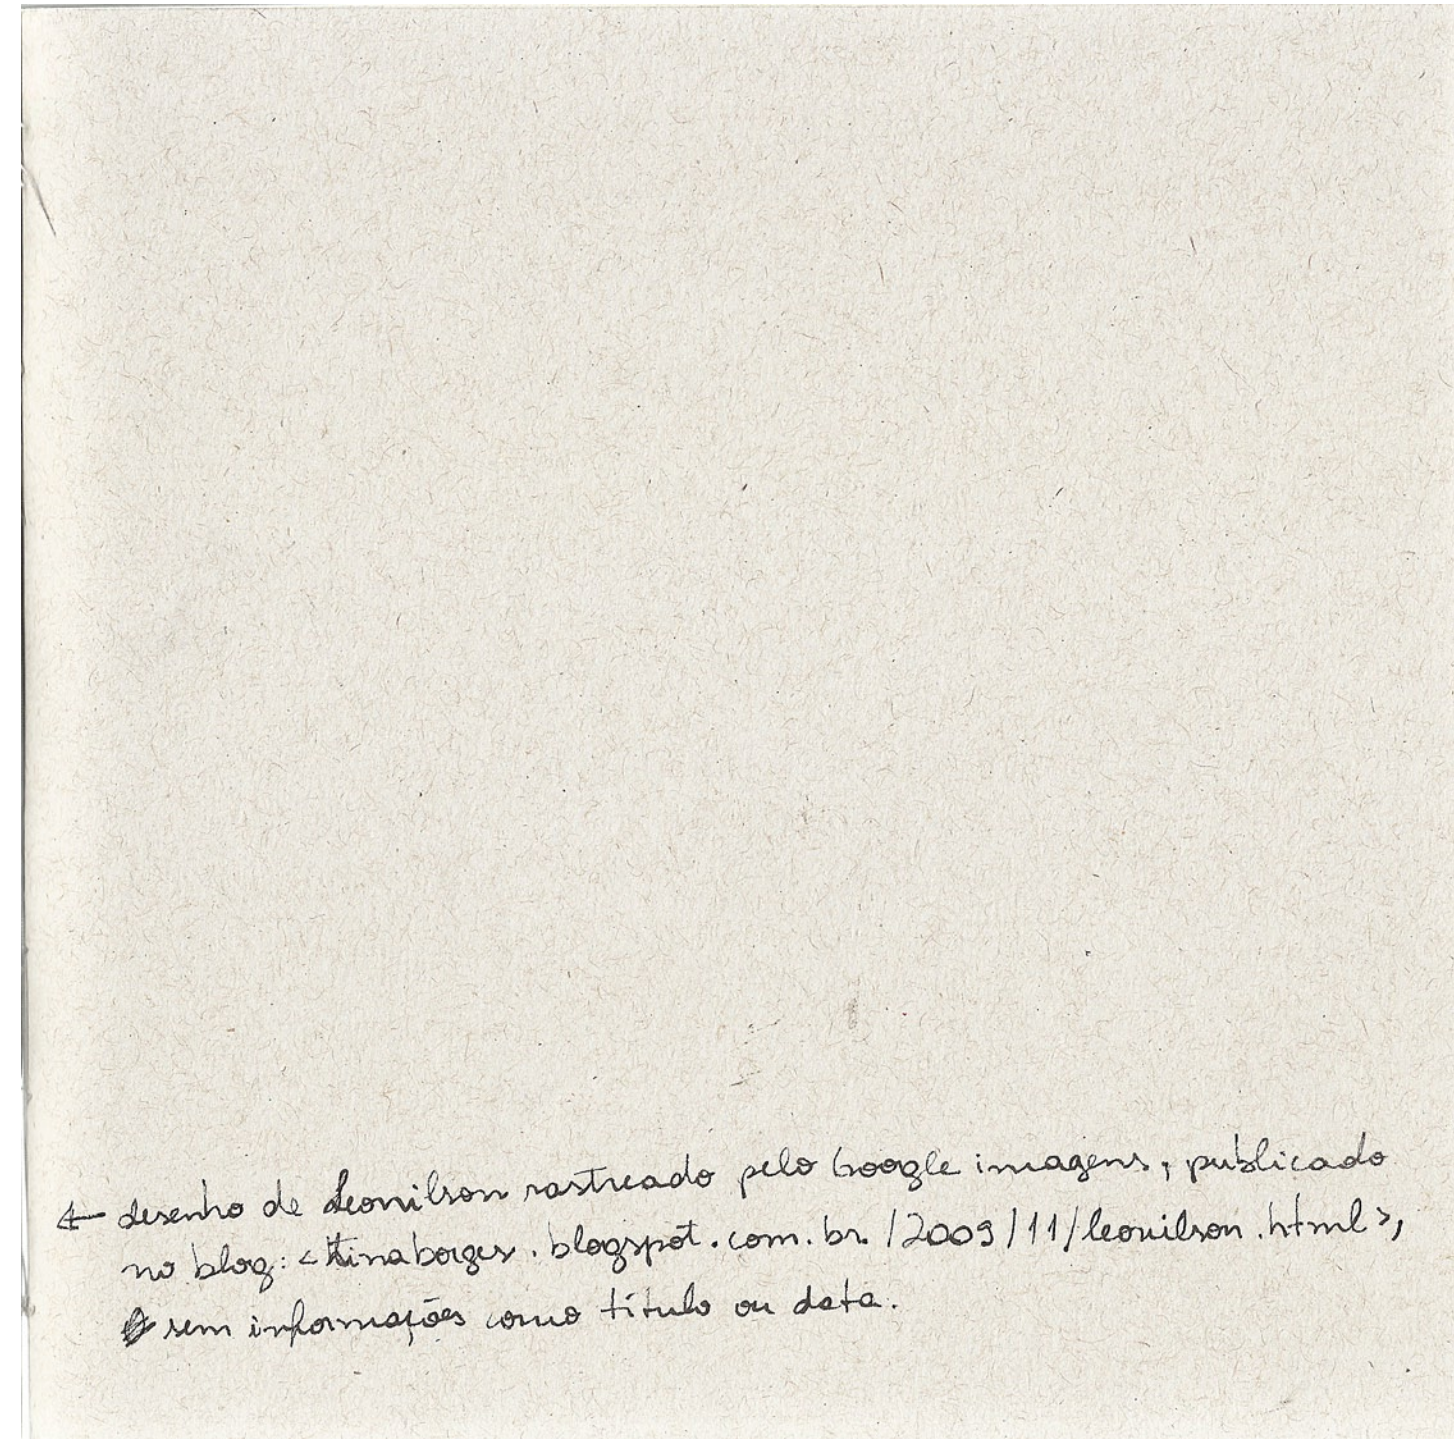 ← desenho de Leonilson rastreado pelo Google imagens, publicado
no blog: <tinaborges.blogspot.com.br/2009/11/leonilson.html>,
sem informações como título ou data.